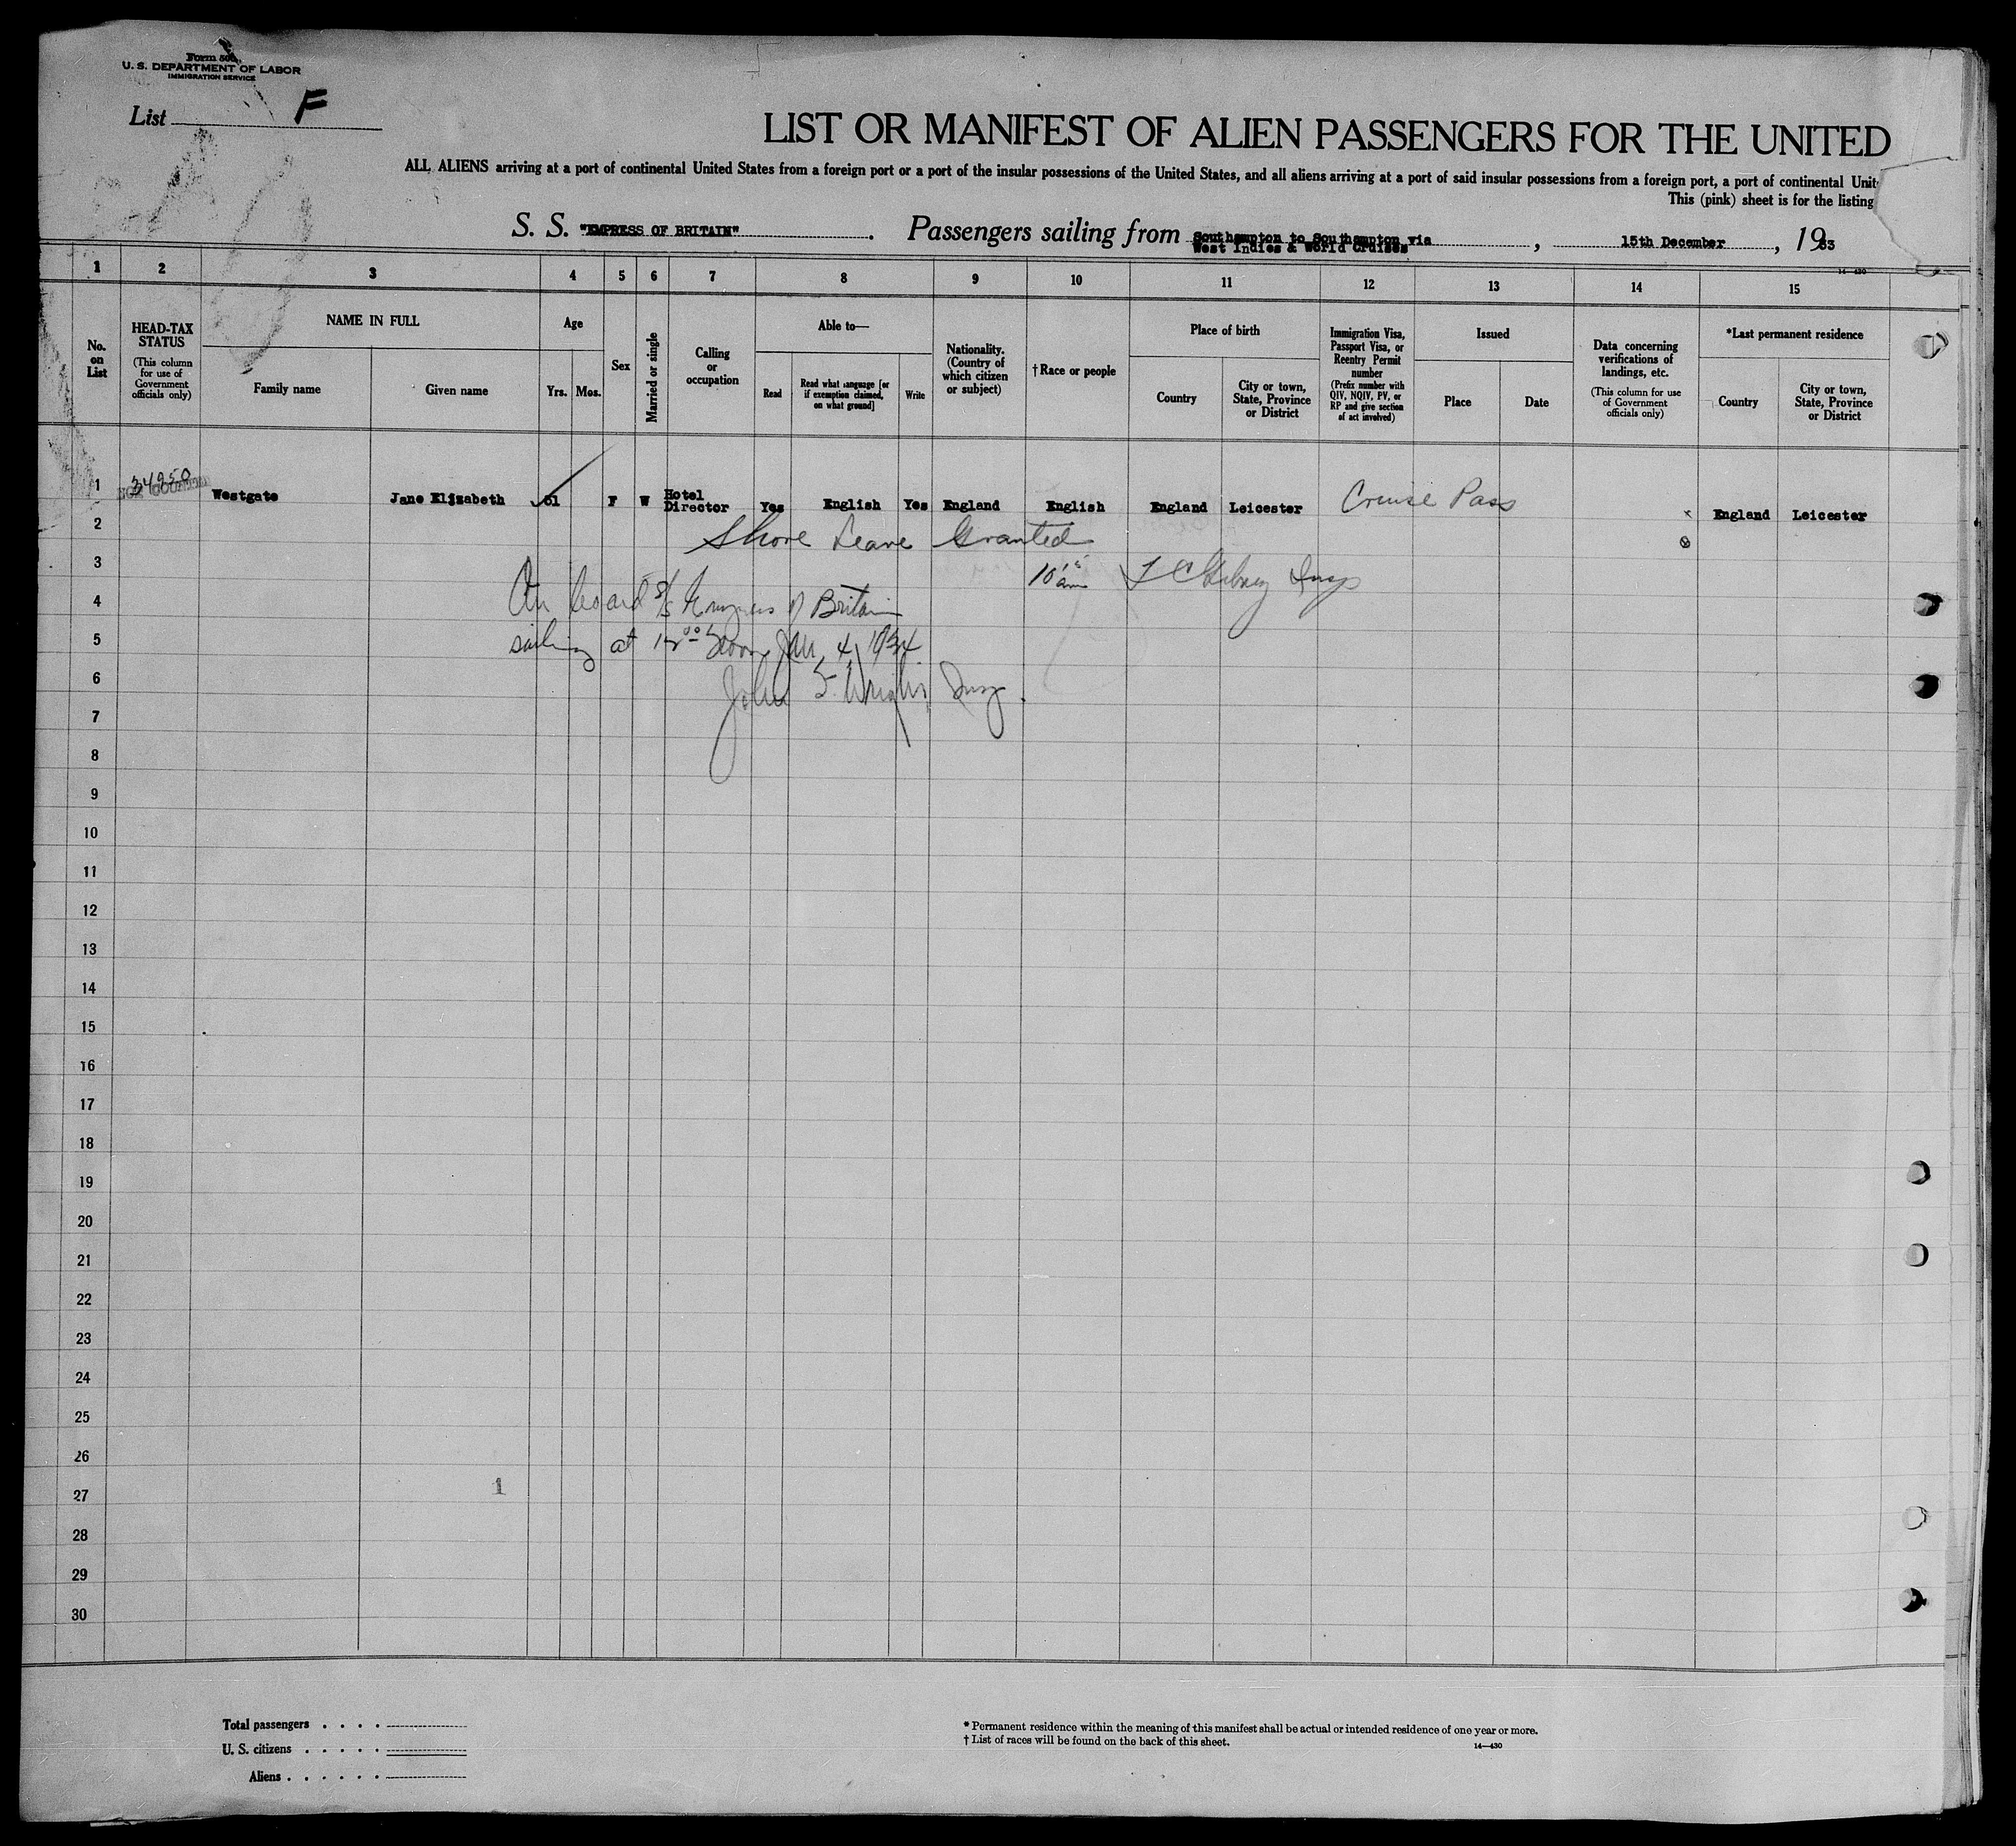 Form 500
U. S. DEPARTMENT OF LABOR
IMMIGRATION SERVICE
List F
LIST OR MANIFEST OF ALIEN PASSENGERS FOR THE UNITED
ALL ALIENS arriving at a port of continental United States from a foreign port or a port of the insular possessions of the United States, and all aliens arriving at a port of said insular possessions from a foreign port, a port of continental Unit
This (pink) sheet is for the listing
S. S. "EMPRESS OF BRITAIN". Passengers sailing from Southampton to Southampton via West Indies & World Cruises, 15th December, 1933
14—430
1 2 3 4 5 6 7 8 9 10 11 12 13 14 15
No. on List
HEAD-TAX STATUS
(This column for use of Government officials only)
NAME IN FULL
Family name
Given name
Age
Yrs. Mos.
Sex
Married or single
Calling or occupation
Able to—
Read
Read what language [or if exemption claimed, on what ground]
Write
Nationality. (Country of which citizen or subject)
†Race or people
Place of birth
Country
City or town, State, Province or District
Immigration Visa, Passport Visa, or Reentry Permit number
(Prefix number with QIV, NQIV, PV, or RP and give section of act involved)
Issued
Place
Date
Data concerning verifications of landings, etc.
(This column for use of Government officials only)
*Last permanent residence
Country
City or town, State, Province or District
1 34950 Westgate Jane Elizabeth 51 F W Hotel Director Yes English Yes England English England Leicester Cruise Pass England Leicester
2 Shore Leave Granted
3 10 am Insp
4 On board S/S Empress of Britain
5 sailing at 12 00 Noon Jan, 4, 1934
6 John Insp.
7
8
9
10
11
12
13
14
15
16
17
18
19
20
21
22
23
24
25
26
1
27
28
29
30
Total passengers . . . .
U. S. citizens . . . . .
Aliens . . . . . .
* Permanent residence within the meaning of this manifest shall be actual or intended residence of one year or more.
† List of races will be found on the back of this sheet.
14—430